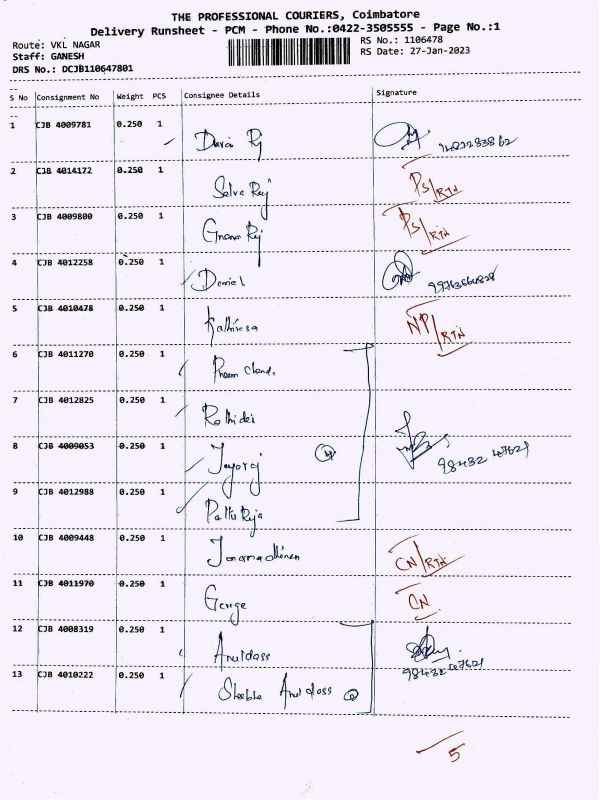 THE PROFESSIONAL COURIERS, Coimbatore
Delivery Runsheet - PCM - Phone No.:0422-3505555 - Page No.:1
Route: VKL NAGAR
RS No.: 1106478
Staff: GANESH
RS Date: 27-Jan-2023
DRS No.: DCJB110647801
S No Consignment No Weight PCS Consignee Details Signature
1 CJB 4009781 0.250 1
2 CJB 4014172 0.250 1 Selva Raj PS/RTN
3 CJB 4009800 0.250 1 Gnana Raj PS/RTN
4 CJB 4012258 0.250 1 Daniel
5 CJB 4010478 0.250 1 NP/RTN
6 CJB 4011270 0.250 1 Prem Chand
7 CJB 4012825 0.250 1
8 CJB 4009053 0.250 1 Jayaraj 4 98432 47621
9 CJB 4012988 0.250 1
10 CJB 4009448 0.250 1 CN/RTN
11 CJB 4011970 0.250 1 George CN
12 CJB 4008319 0.250 1 Aruldass 98432 47621
13 CJB 4010222 0.250 1 Arul doss 2
5